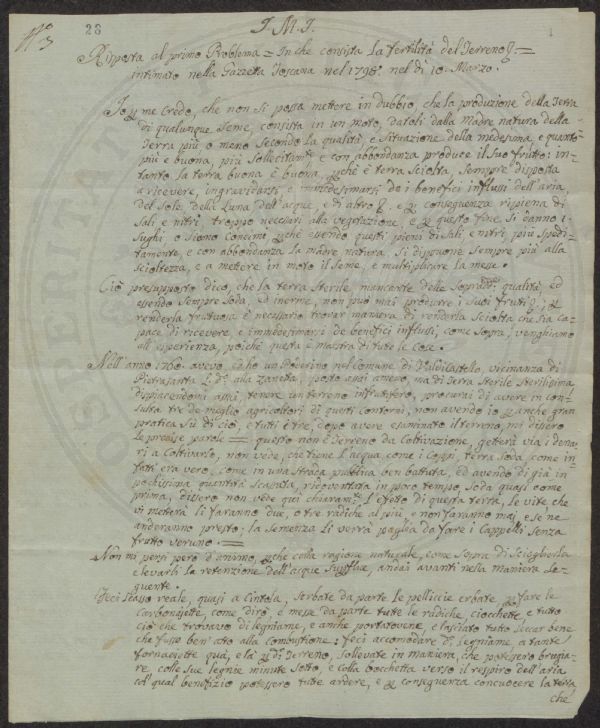 28
J. M. J.
1
Risposta al primo Problema = In che consista la fertilità del Terreno q. =
intimato nella Gazzetta Toscana nel 1798. nel dì 10. Marzo.
Io p me credo, che non si possa mettere in dubbio, che la produzione della Terra
di qualunque seme, consista in un moto, datoli dalla Madre natura della
Terra più o meno secondo la qualità, e situazione della medesima, e quanto
più e buona, più sollecitamte e con abbondanza produce il suo frutto: in-
tanto la terra buona è buona, pchè è terra sciolta, sempre disposta
a ricevere, ingravidarsi e immedesimarsi de i benefici influssi dell'aria
del Sole, della Luna dell'acque, e di altro q. e p conseguenza ripiena di
Sali e nitri troppo necessari alla vegetazione, e p questo fine si danno i
Sughi o siano Concimi, pchè essendo questi pieni di Sali, e nitri più spedi-
tamente, e con abbondanza la madre natura si dispone sempre più alla
scioltezza, e a mettere in moto il seme, e multiplicare la messe.
Ciò presupposto dico, che la terra sterile, mancante delle sopradde qualità, ed
essendo sempre soda, ed inerme, non può mai produrre i suoi frutti q.; e p
renderla fruttuosa è necessario trovar maniera di renderla sciolta che sia ca-
pace di ricevere e immedesimarsi de benefici influssi, come sopra, venghiamo
all'esperienza, poichè questa è maestra di tutte le cose.
Nell'anno 1760. avevo, ed ho un Poderino nel comune di Valdicastello, vicinanza di
Pietrasanta L. D. alla Zanetta, posto assai ameno, ma di terra sterile sterilissima
dispiacendomi assai, tenere un terreno infruttifero, procurai di avere in con-
sulta tre de meglio agricoltori di questi contorni, non avendo io p anche gran
pratica sù di ciò, e tutti e trè, dopo avere esaminato il terreno, mi dissero
le precise parole = questo non è terreno da Coltivazione, getterà via i dena-
ri a Coltivarlo, non vede, che tiene l'acqua come i Coppi, terra soda come in-
fatti era vero, come in una strada pubblica ben battuta, ed avendo di già in
pochissima quantità scassata, ridoventata in poco tempo, soda quasi come
prima, dissero non vede quì chiaramte. l'efetto di questa terra, le vite, che
vi metterà li faranno due, o tre radiche al più, e non faranno mai, e se ne
anderanno presto; la semenza li verrà paglia da fare i Cappelli senza
frutto veruno. =
Non mi persi però d'animo, pchè colla ragione naturale, come sopra di scioglierla
e levarli la retenzione dell'acque superflue, andai avanti nella maniera se-
guente.
Feci scasso reale, quasi a cintola, serbate da parte le pelliccie erbate p fare le
Carbonasette, come dirò, e messe da parte tutte le radiche, ciocchette, e tutto
ciò che trovavo di legniame, e anche portatovene, e lasciato tutto seccar bene
che fusse ben' atto alla combustione; feci accomodare do. legniame, a tante
fornacette quà, e là p do. Terreno, sollevate in maniera, che potessero brugia-
re colle sue legnie minute sotto, e colla bocchetta verso il respiro dell'aria
col qual benefizio potessero tutte ardere, e p conseguenza concuocere la terra
che